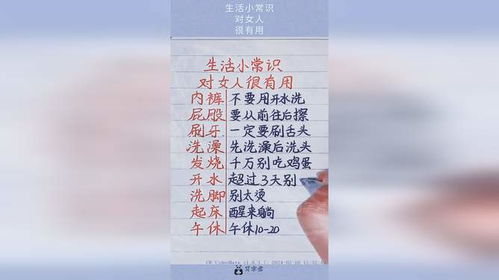 生活小常识
对女人
很有用
生活小常识
对女人很有用
内裤 不要用开水洗
屁股 要从前往后擦
刷牙 一定要刷舌头
洗澡 先洗澡后洗头
发烧 千万别吃鸡蛋
开水 超过3天别
洗脚 别太烫
起床 醒来躺
午休 午休10-20